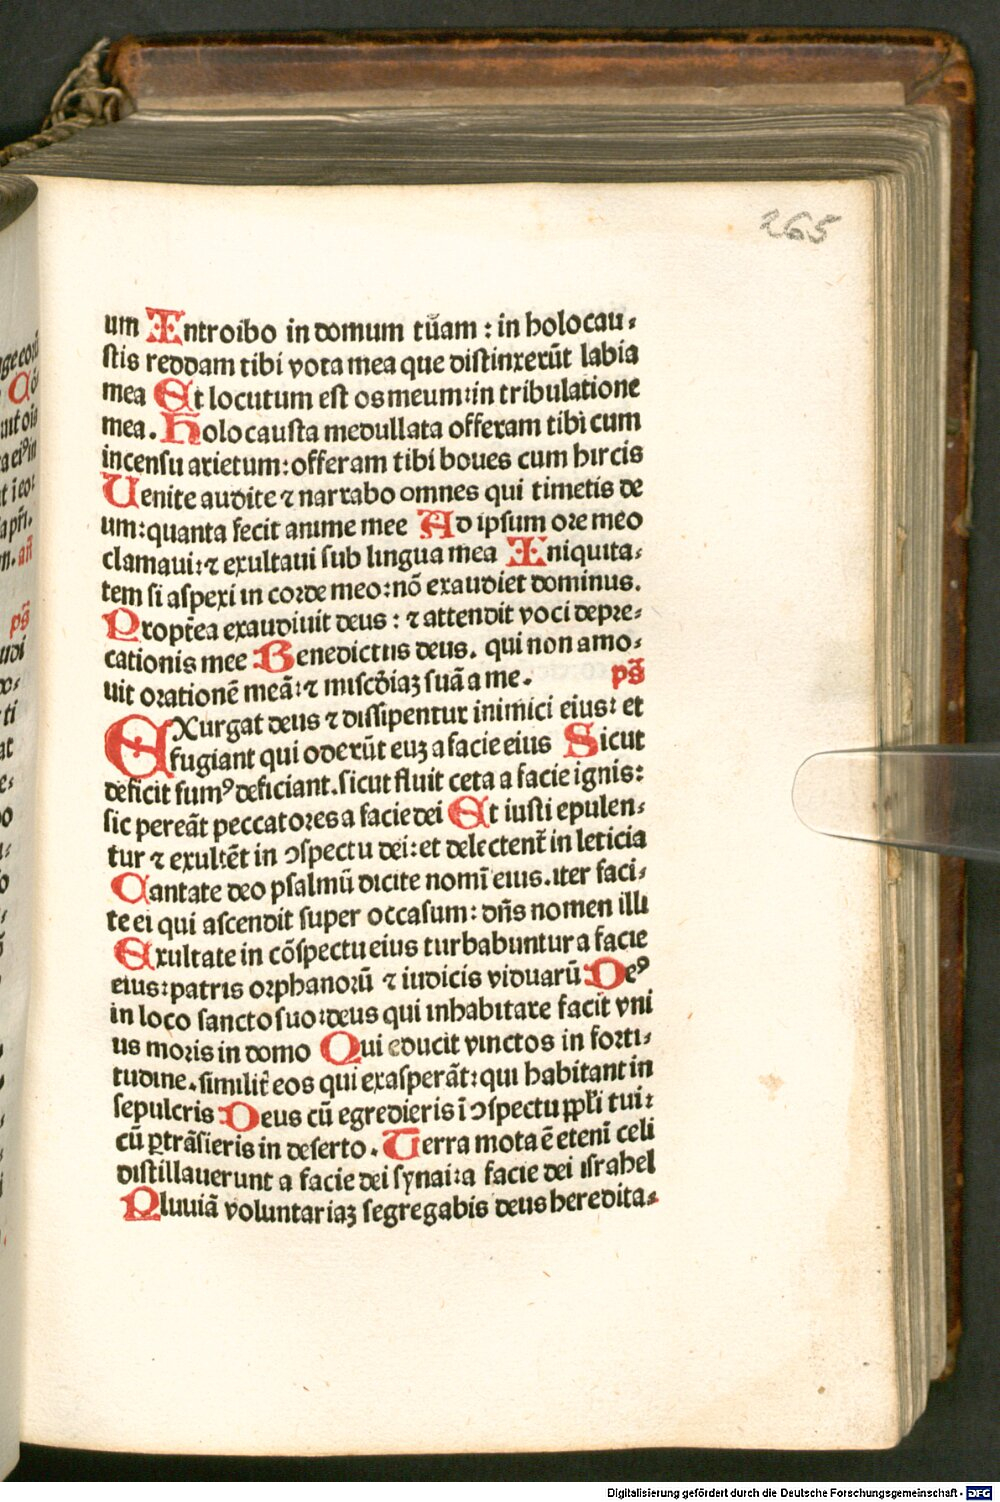 265
um Introibo in domum tuam : in holocau⸗
stis reddam tibi vota mea que distinxerūt labia
mea Et locutum est os meum: in tribulatione
mea. Holocausta medullata offeram tibi cum
incensu arietum: offeram tibi boues cum hircis
Uenite audite ⁊ narrabo omnes qui timetis de
um: quanta fecit anime mee Ad ipsum ore meo
clamaui: ⁊ exultaui sub lingua mea Iniquita⸗
tem si aspexi in corde meo: nō exaudiet dominus.
Propt̄ea exaudiuit deus : ⁊ attendit voci depre⸗
cationis mee Benedictus deus. qui non amo⸗
uit orationē meā: ⁊ mis̄cdiaꝫ suā a me. ps̄
EXurgat deus ⁊ dissipentur inimici eius: et
fugiant qui oderūt euꝫ a facie eius Sicut
deficit fumꝰ deficiant. sicut fluit cera a facie ignis:
sic pereāt peccatores a facie dei Et iusti epulen⸗
tur ⁊ exultēt in ↄspectu dei: et delectent̄ in leticia
Cantate deo psalmū dicite nomī eius. iter faci⸗
te ei qui ascendit super occasum: dn̄s nomen illi
Exultate in cōspectu eius turbabuntur a facie
eius: patris orphanorū ⁊ iudicis viduarū Deꝰ
in loco sancto suo: deus qui inhabitare facit vni
us moris in domo Qui educit vinctos in forti⸗
tudine. similit̄ eos qui exasperāt: qui habitant in
sepulcris Deus cū egredieris ī ↄspectu ppl̄i tui:
cū ꝑtrāsieris in deserto. Terra mota ē etenī celi
distillauerunt a facie dei synai: a facie dei israhel
Pluuiā voluntariaꝫ segregabis deus heredita⸗
Digitalisierung gefördert durch die Deutsche Forschungsgemeinschaft - DFG